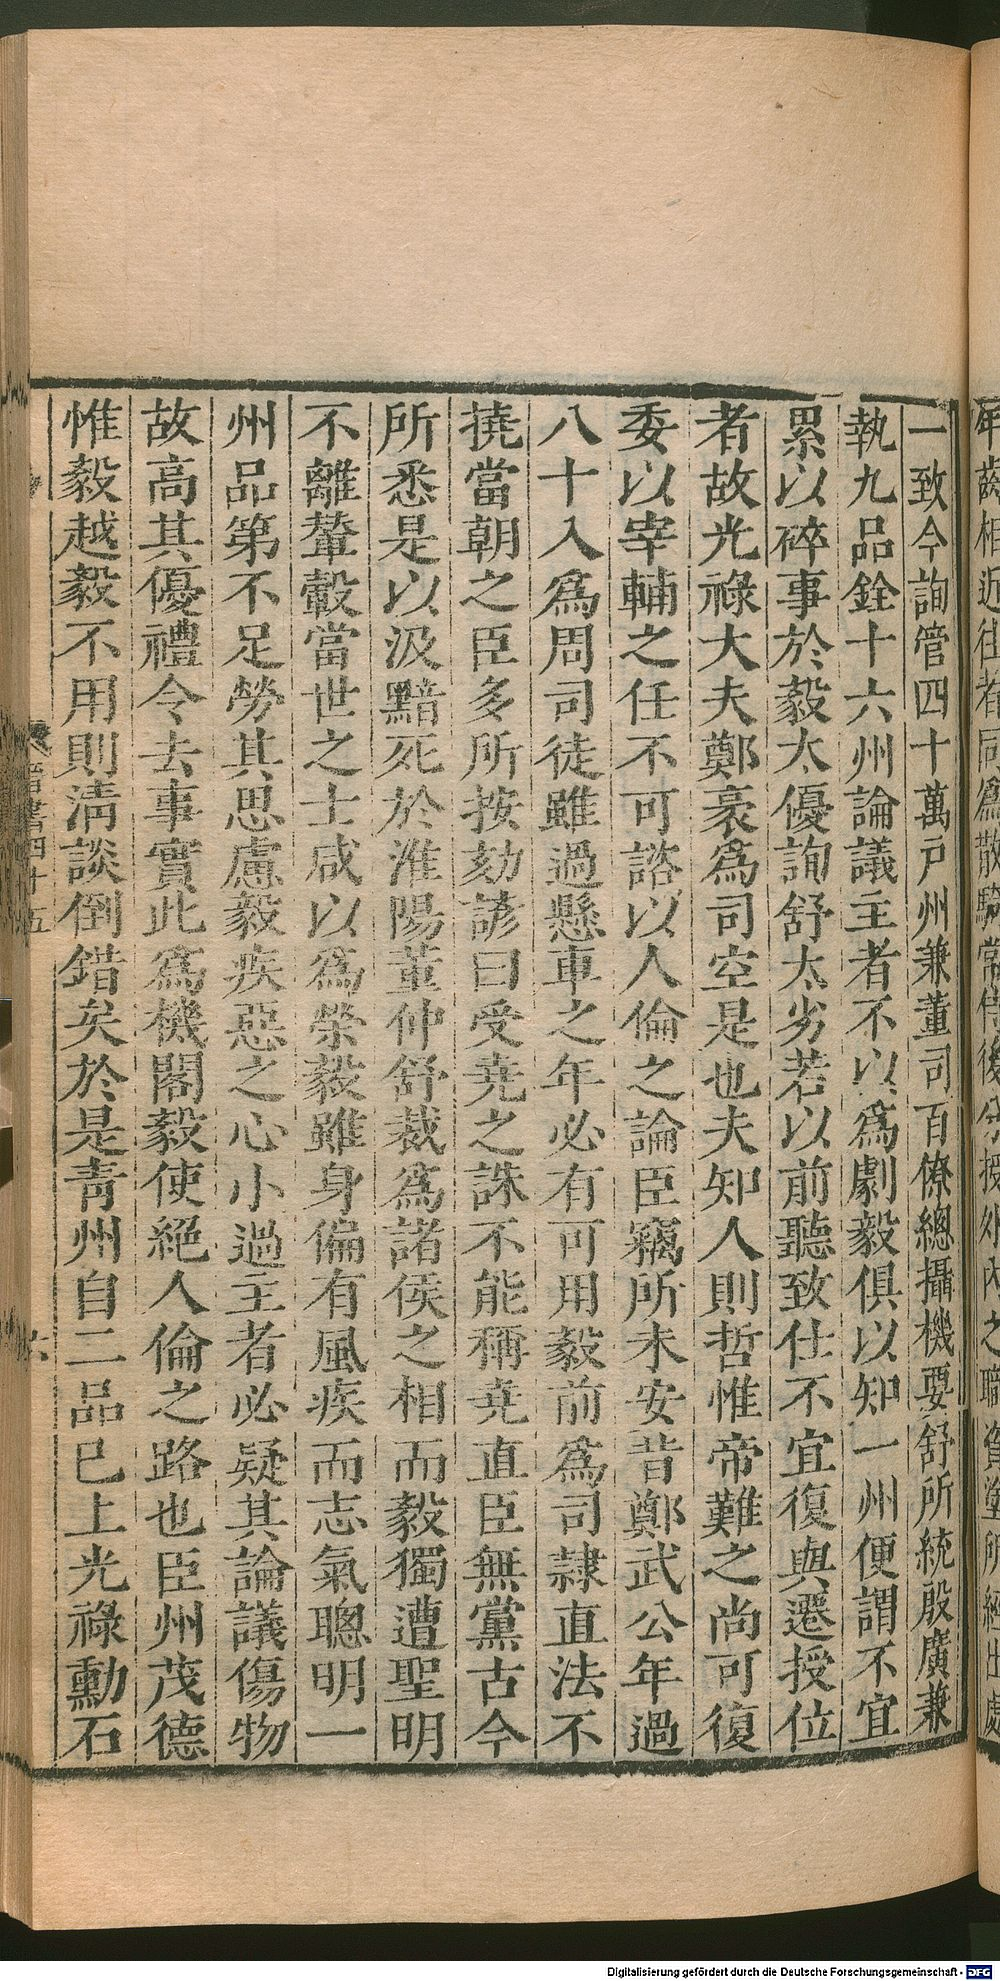 年齒相近往者同爲散騎常侍後分授外內之職資塗所經出處
一致今詢管四十萬戶州兼董司百僚總攝機要舒所統殷廣兼
執九品銓十六州論議主者不以爲劇毅俱以知一州便謂不宜
累以碎事於毅太優詢舒太劣若以前聽致仕不宜復與遷授位
者故光祿大夫鄭袤爲司空是也夫知人則哲惟帝難之尚可復
委以宰輔之任不可諮以人倫之論臣竊所未安昔鄭武公年過
八十入爲周司徒雖過懸車之年必有可用毅前爲司隸直法不
撓當朝之臣多所按劾諺曰受堯之誅不能稱堯直臣無黨古今
所悉是以汲黯死於淮陽董仲舒裁爲諸侯之相而毅獨遭聖明
不離輦轂當世之士咸以爲榮毅雖身偏有風疾而志氣聰明一
州品第不足勞其思慮毅疾惡之心小過主者必疑其論議傷物
故高其優禮令去事實此爲機閣毅使絕人倫之路也臣州茂德
惟毅越毅不用則淸談倒錯矣於是靑州自二品已上光祿勳石
晉書四十五
六
Digitalisierung gefördert durch die Deutsche Forschungsgemeinschaft - DFG